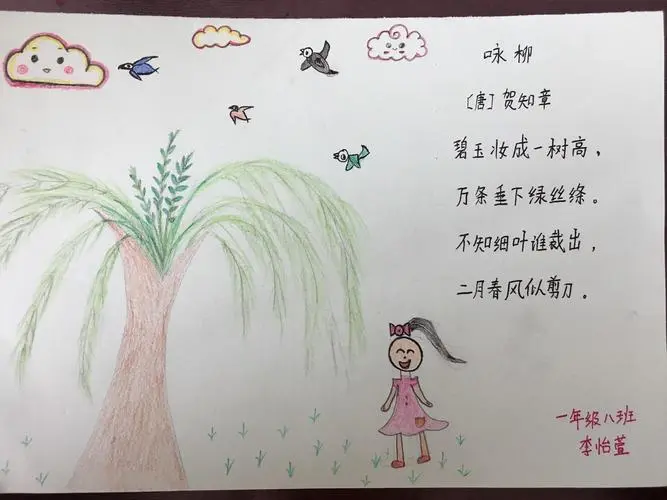 咏柳
〔唐〕贺知章
碧玉妆成一树高，
万条垂下绿丝绦。
不知细叶谁裁出，
二月春风似剪刀。
一年级八班
李怡萱